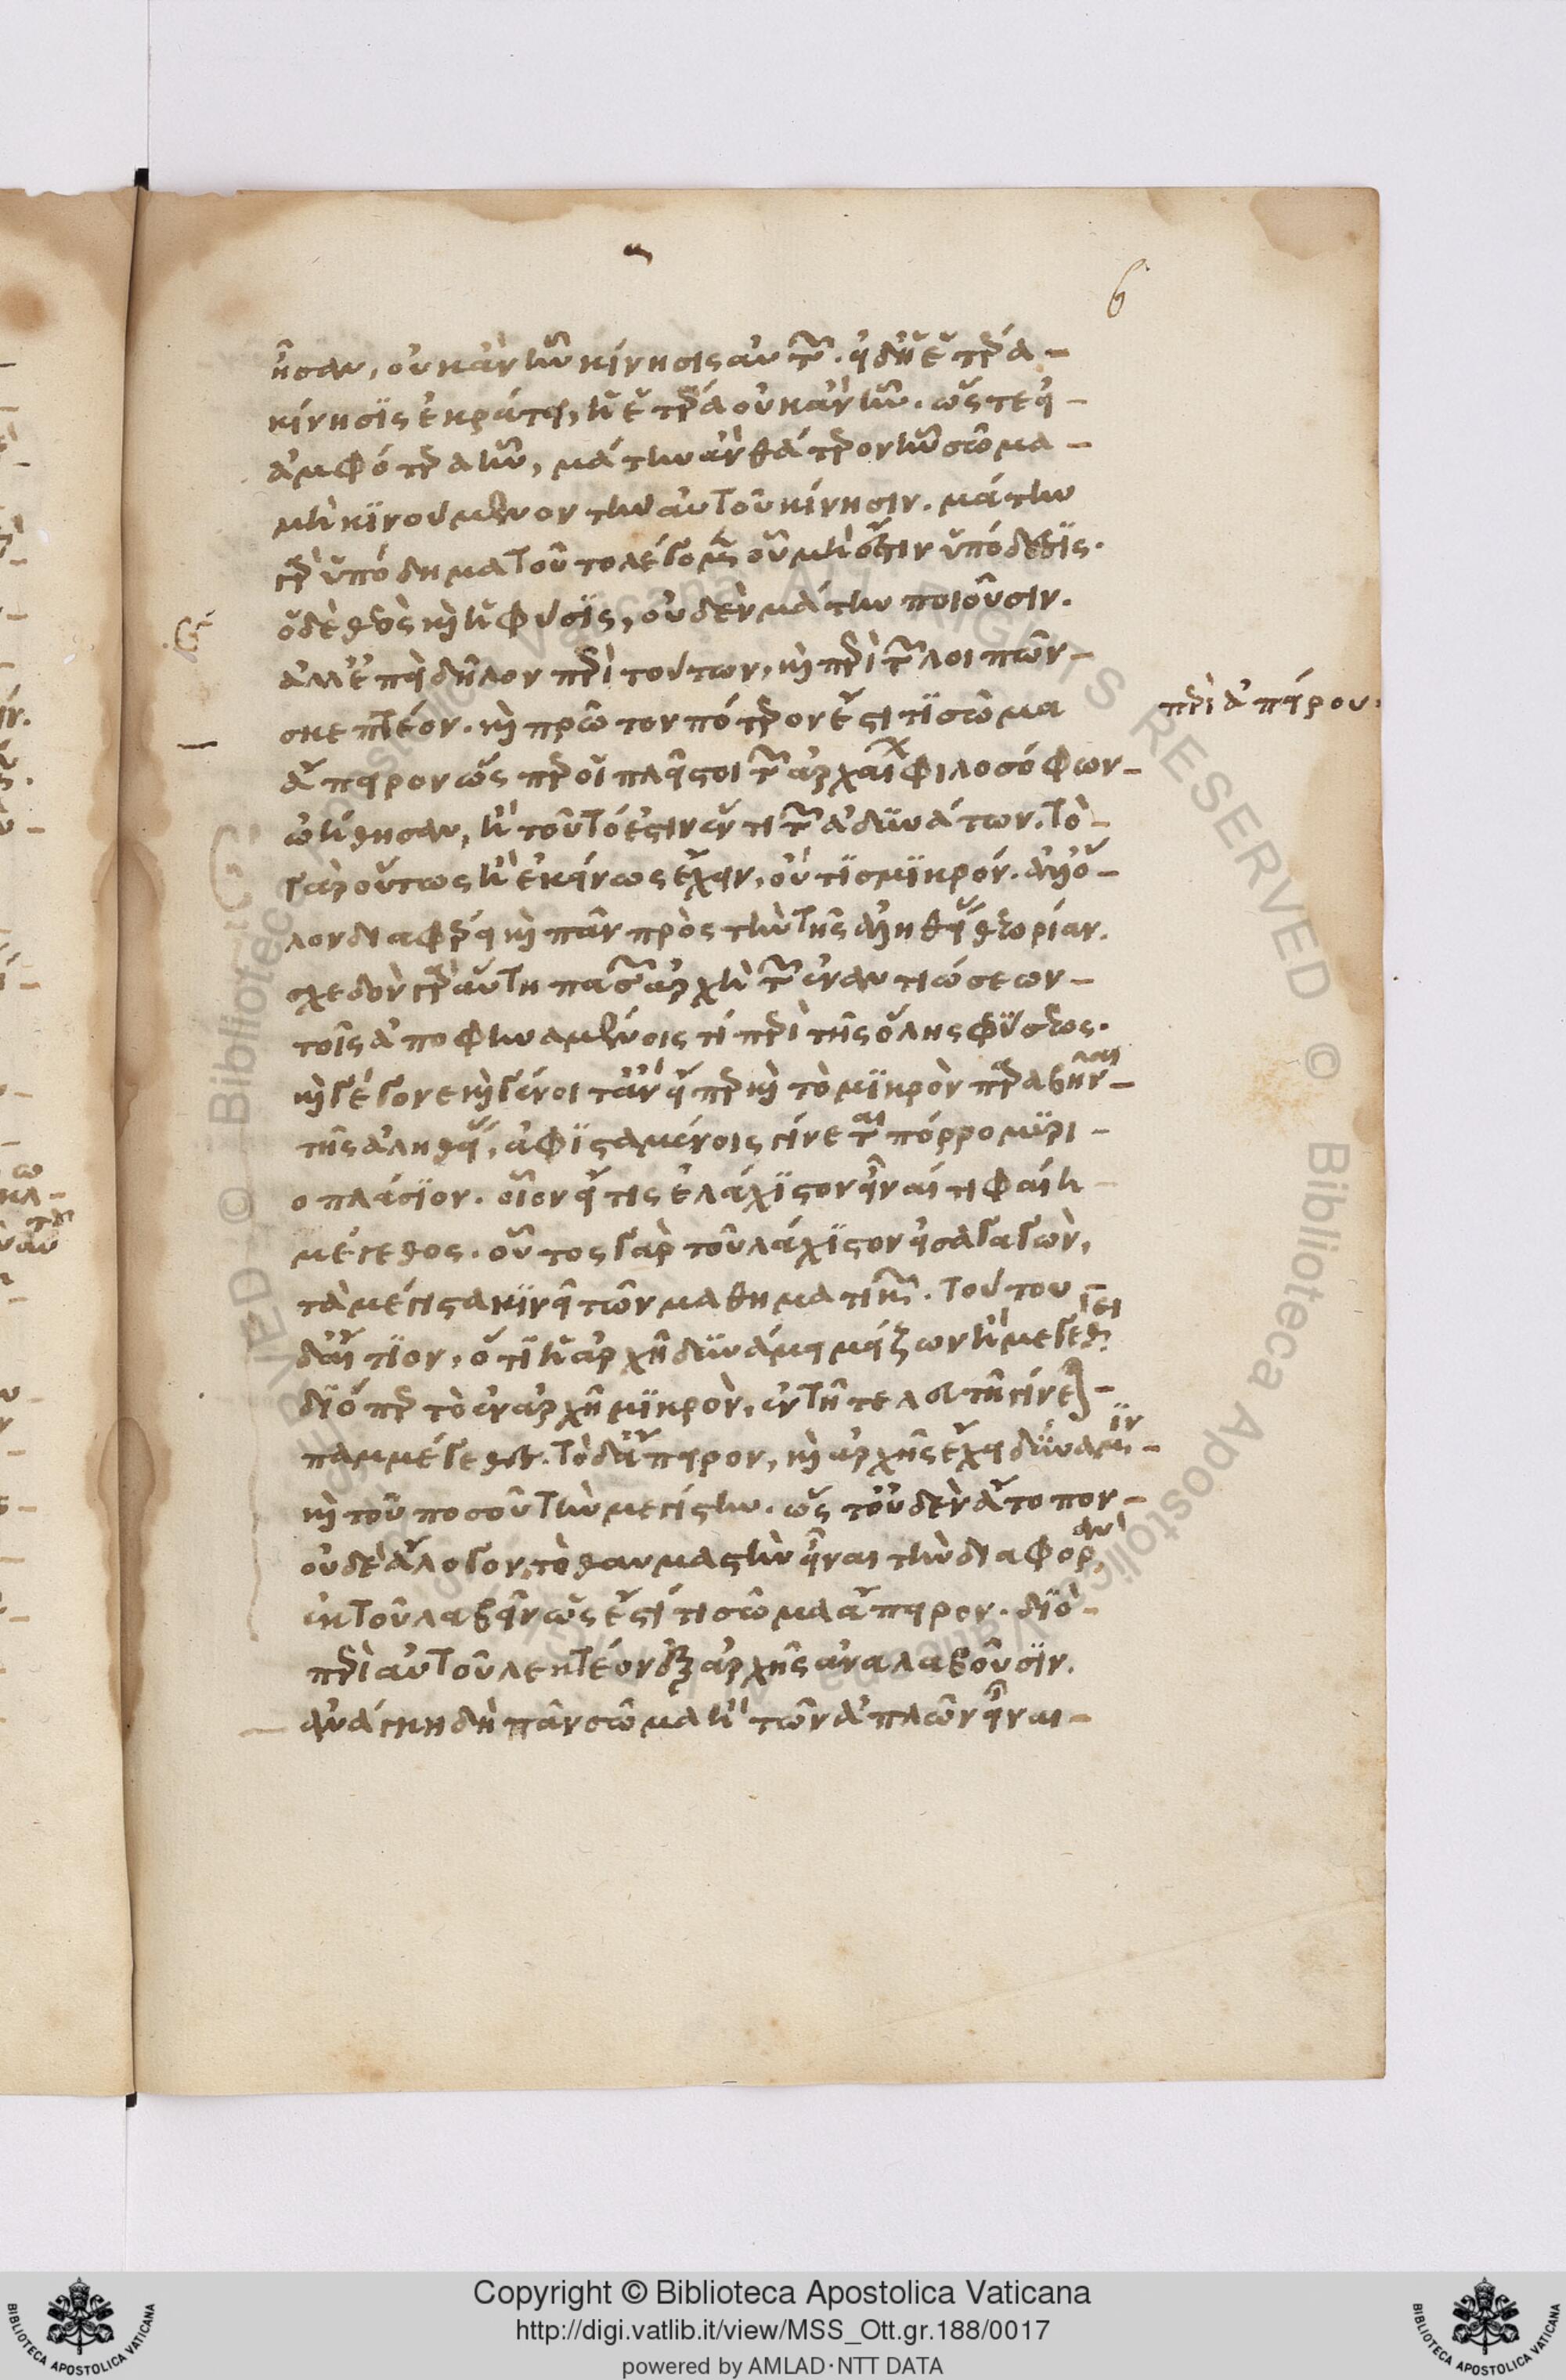 6
ἦσαν, οὐκ ἂν ἦν κίνησις αὐτῶν. εἰ δὴ ἡ ἑτέρα
κίνησϊς ἐκράτει, ἡ ἑτέρα οὐκ ἂν ἦν. ὥστε εἰ
ἀμφότερα ἦν, μάτην ἂν θάτερον ἦν σῶμα
μὴ κϊνούμενον τὴν αὐτοῦ κίνησιν. μάτην
γὰρ ὑπόδημα τοῦτο λέγομεν οὗ μή ἐστιν ὑπόδεσϊς.
ὁ δὲ θεὸς καὶ ἡ φύσϊς, οὐδὲν μάτην ποιοῦσιν.
ἀλλ' ἐπεὶ δῆλον περὶ τούτων, καὶ περὶ τῶν λοιπῶν
σκεπτέον. καὶ πρῶτον πότερον ἔστι τϊ σῶμα
περὶ ἀπείρου.
ἄπειρον ὥσπερ οἱ πλεῖστοι τῶν ἀρχαίων φιλοσόφων
ὠήθησαν, ἢ τοῦτό ἐστιν ἕν τι τῶν ἀδϋνάτων. τὸ
γὰρ οὕτως ἢ ἐκείνως ἔχειν, οὔ τϊ σμϊκρόν. ἀλλ' ὅ
λον διαφέρει καὶ πᾶν πρὸς τὴν τῆς ἀληθείας θεωρίαν.
σχεδὸν γὰρ αὕτη πασῶν ἀρχὴ τῶν ἐναντιώσεων
τοῖς ἀποφηναμένοις τὶ περὶ τῆς ὅλης φύσεως.
καὶ γέγονε καὶ γένοιτ' ἂν εἴπερ καὶ τὸ μϊκρὸν παραβῆναι
τῆς ἀληθείας, ἀφϊσταμένοις γίνεται πόρρω μϋρι
οπλάσϊον. οἷον εἴ τις ἐλάχϊστον εἶναί τι φαίη
μέγεθος. οὗτος γὰρ τοὐλάχϊστον εἰσαγαγὼν,
τὰ μέγιστα κϊνεῖ τῶν μαθηματικῶν. τούτου
δ' αἴτϊον, ὅτϊ ἡ ἀρχὴ δϋνάμει μείζων ἢ μεγέθει
δϊόπερ τὸ ἐν ἀρχῇ μϊκρὸν, ἐν τῇ τελευτῇ γίνεται
παμμέγεθες. τὸ δ' ἄπειρον, καὶ ἀρχῆς ἔχει δϋναμϊν
καὶ τοῦ ποσοῦ τὴν μεγίστην. ὥστ' οὐδὲν ἄτοπον
οὐδὲ ἄλογον, τὸ θαυμαστὴν εἶναι τὴν διαφορὰν
ἐκ τοῦ λαβεῖν ὡς ἔστί τι σῶμα ἄπειρον. δϊὸ
περὶ αὐτοῦ λεκτέον ἐξ ἀρχῆς ἀναλαβοῦσϊν.
ἀνάγκη δὴ πᾶν σῶμα ἢ τῶν ἁπλῶν εἶναι
Copyright © Biblioteca Apostolica Vaticana
http://digi.vatlib.it/view/MSS_Ott.gr.188/0017
powered by AMLAD·NTT DATA